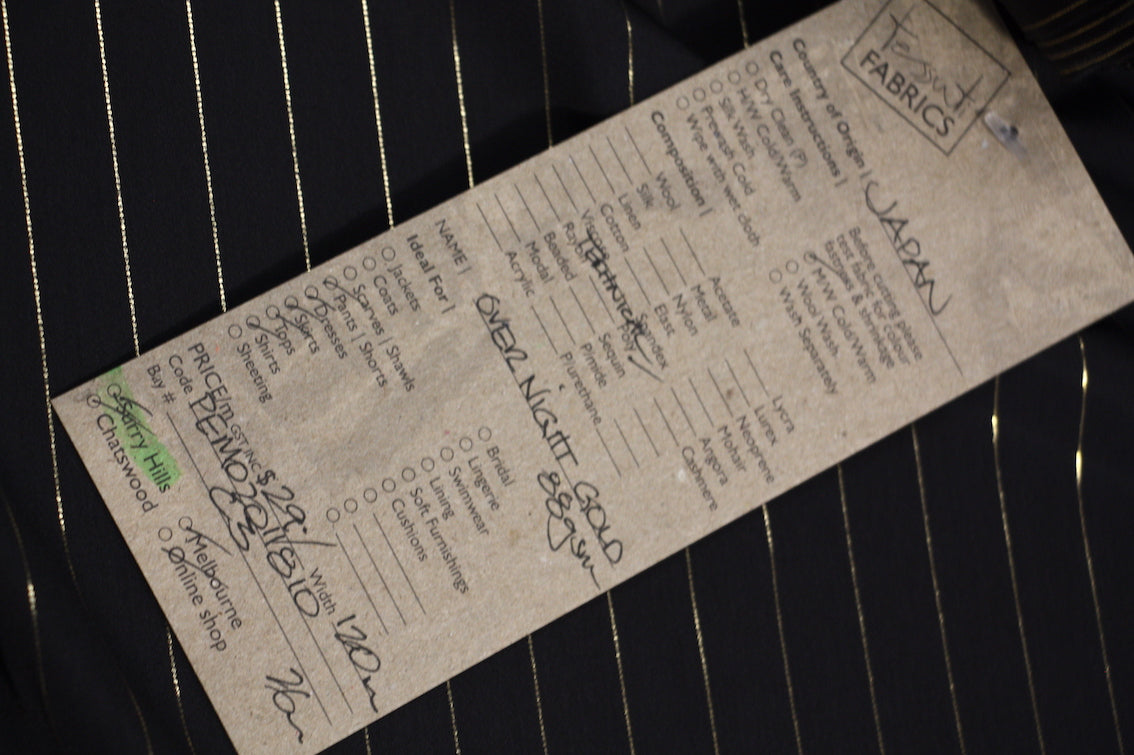 tessuti
FABRICS
Country of Origin | JAPAN
Care Instructions |
Dry Clean (P)
H/W Cold/Warm
Silk Wash
Prewash Cold
Wipe with wet cloth
Before cutting please
test fabric for colour
fastness & shrinkage
M/W Cold/Warm
Wool Wash
Wash Separately
Composition |
Wool
Silk
Linen
Cotton
Beaded
Modal
Acrylic
Acetate
Metal
Nylon
Elast
Spandex
Sequin
Pinnide
P/urethane
Lycra
Lurex
Neoprene
Mohair
Angora
Cashmere
NAME | OVER NIGHT GOLD
88gsm
Ideal For |
Jackets
Coats
Scarves | Shawls
Pants | Shorts
Dresses
Skirts
Tops
Shirts
Sheeting
Bridal
Lingerie
Swimwear
Lining
Soft Furnishings
Cushions
PRICE/m GST INC $ 29.- Width 120m
Code
Buy #
Surry Hills
Chatswood
Melbourne
Online shop